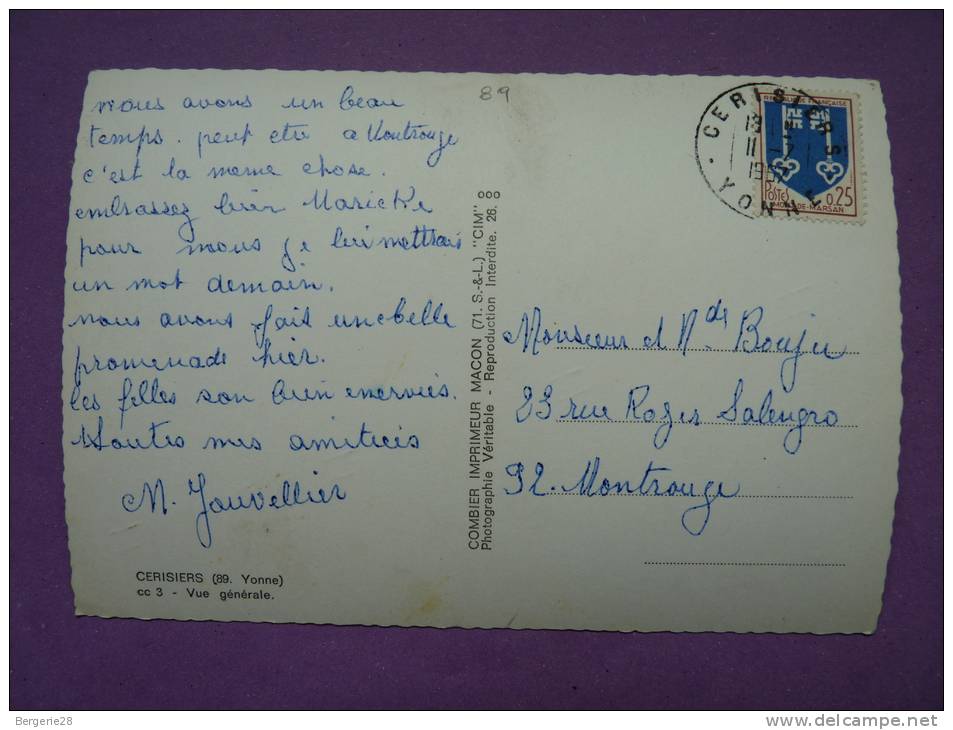 nous avons un beau
temps. peut etre a Montrouge
c'est la meme chose.
embrassez bien
pour nous je lui mettrais
un mot demain.
nous avons fait une belle
promenade hier.
les filles son bien enervées.
Toutes mes amitiés
M. Jouvellier
CERISIERS (89. Yonne)
cc 3 - Vue générale.
COMBIER IMPRIMEUR MACON (71. S.-&-L.) "CIM"
Photographie Véritable - Reproduction Interdite. 28. ooo
89
CERISIERS
11 -7
YONNE
REPUBLIQUE FRANÇAISE
POSTES 0,25
MONT-DE-MARSAN
Monsieur et Mde Bouju
23 rue Roger Salengro
92. Montrouge
Bergerie28
www.delcampe.net